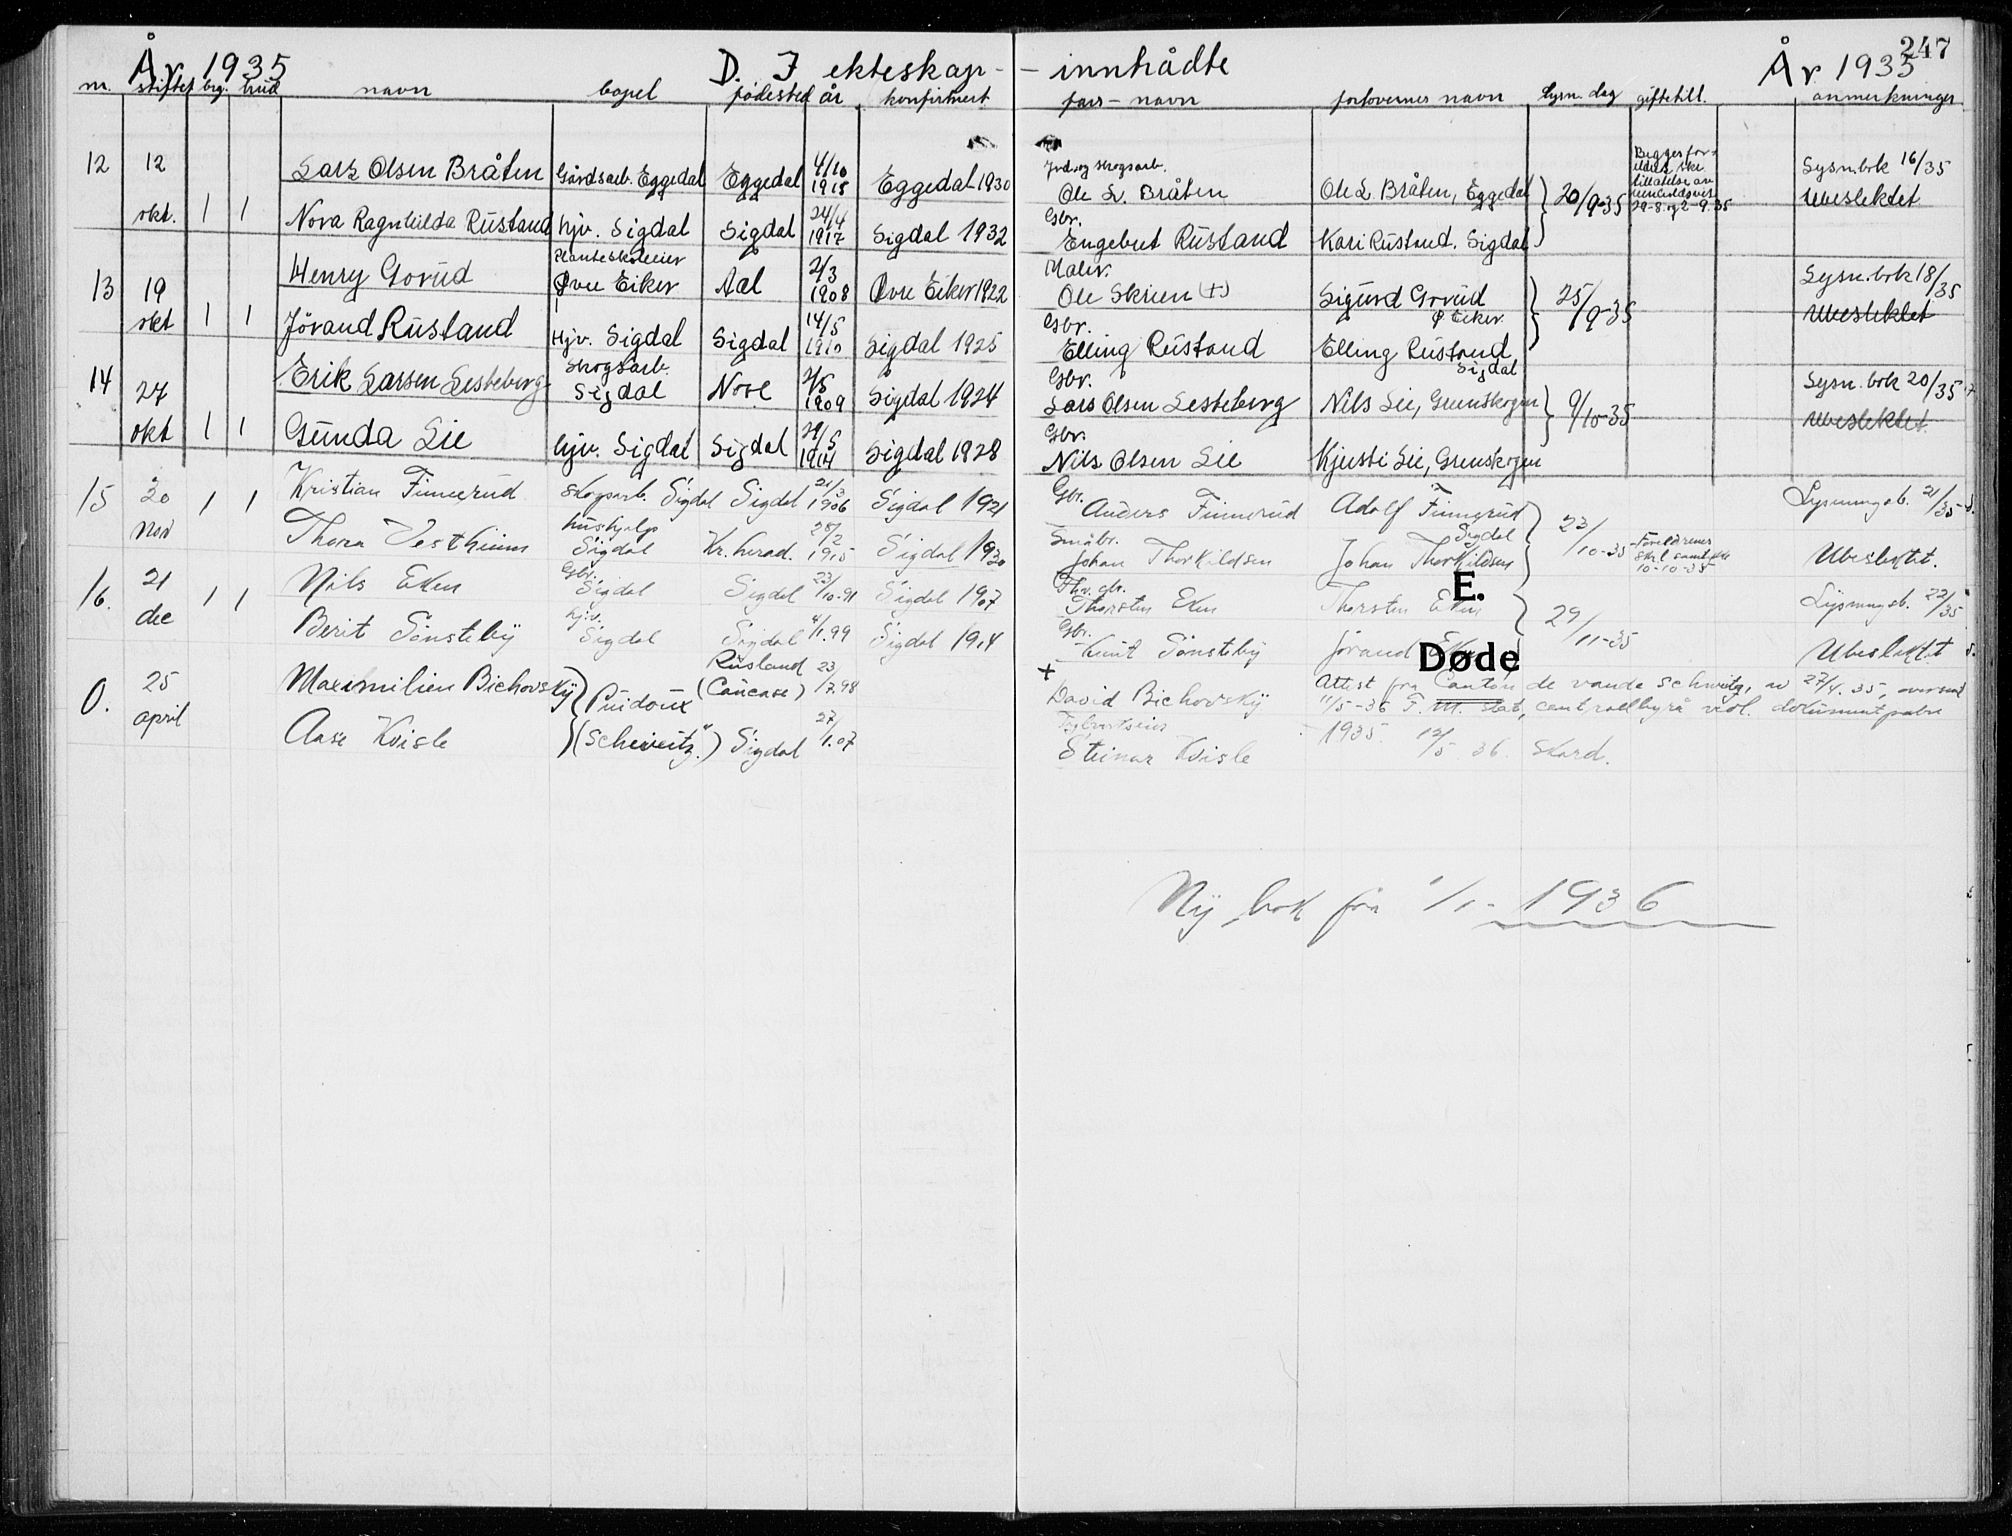 247
År 1935 D. I ekteskap- - innhådte År 1935
nr. stiftet brg. brud navn bopel fødested år konfirmert fars - navn forlovernes navn lysn. dag giftetill. anmerkninger
12 12 okt. 1 1
Lars Olsen Bråten Gårdsarb. Eggedal Eggedal 4/10 1915 Eggedal 1930 Jord og skogsarb. Ole L. Bråten Ole L. Bråten, Eggedal 20/9-35 Lysn.bok 16/35
29-8. og 2-9.35
Nora Ragnhilda Rustand hjv. Sigdal Sigdal 24/4 1917 Sigdal 1932 Gbr. Engebret Rustand Kari Rustand, Sigdal Ubeslektet
13 19 okt 1 1
Henry Gorud Planteskoleeier Øvre Eiker Aal 2/3 1908 Øvre Eiker 1922 Maler. Ole Skrien (+) Sigurd Gorud Ø. Eiker 25/9-35 Lysn.bok 18/35
Jörand Rustand Hjv. Sigdal Sigdal 14/5 1910 Sigdal 1925 Gbr. Elling Rustand Elling Rustand, Sigdal Ubeslektet
14 27 okt 1 1
Erik Larsen Lesteberg Skogsarb. Sigdal Nore 2/5 1909 Sigdal 1924 Gbr. Lars Olsen Lesteberg Nils Lie, Grenskogen 9/10-35 Lysn. bok 20/35
Gunda Lie hjv. Sigdal Sigdal 29/5 1914 Sigdal 1928 Gbr. Nils Olsen Lie Kjersti Lie, Grenskogen Ubeslektet.
15 20 nov 1 1
Kristian Finnerud Skogsarb. Sigdal Sigdal 21/3 1906 Sigdal 1921 Gbr. Anders Finnerud Adolf Finnerud Sigdal 23/10-35 Lysningsb. 21/35
Thora Vestheim hushjelp Sigdal Kr.herad. 28/2 1915 Sigdal 1930 Småbr. Johan Thorkildsen Johan Thorkildsen Foreldrenes skrl samtykke 10-10-35 Ubeslektet.
16. 21 dec 1 1
Nils Eken Gbr. Sigdal Sigdal 23/10-91 Sigdal 1907 Fhv. gbr. Thorsten Eken Thorsten Eken 29/11-35 Lysningsb. 22/35
E.
Berit Sönsteby hjv. Sigdal Sigdal 4/1.99 Sigdal 1914 Gbr. Knut Sönsteby Jörand Eken Ubeslektet
Døde
0. 25 april
Maximilien Bichovskÿ Puidoux Rusland (Caucase) 23/7.98 + David Bichovskÿ Attest fra Canton de vaude Schweitz, av 27/4. 35, oversendt
11/5-36 F. M. stat. centralbyrå vedl. dokumentpakke
Aase Kvisle (Schweitz") Sigdal 27/1.07 Steinar Kvisle 1935 12/5 36. Skard.
Ny bok fra 1/1- 1936